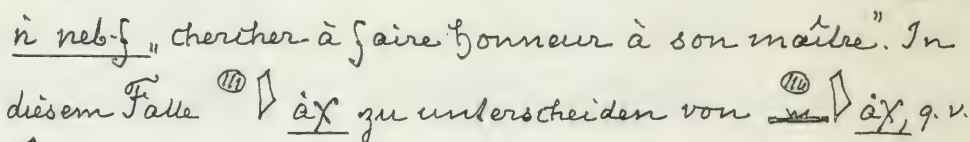 ṅ neb-f „chercher à faire honneur à son maître". In
diesem Falle àχ zu unterscheiden von àχ, q. v.